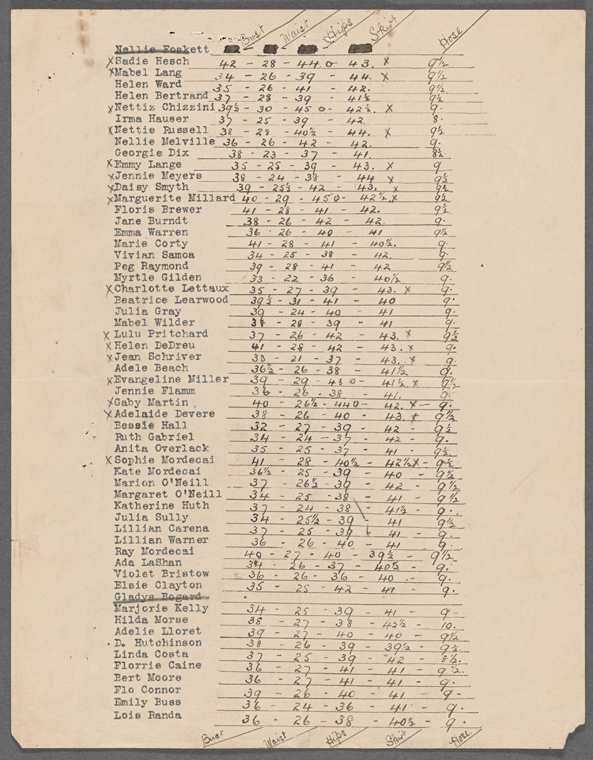 Bust Waist Hips Skirt Hose
Nellie Foskett
x Sadie Hesch 42 - 28 - 44 0 - 43. x 9½
x Mabel Lang 34 - 26 - 39 - 44. x 9½
Helen Ward 35 - 26 - 41 - 42. 9.
Helen Bertrand 37 - 28 - 39 - 41½ 9½
x Nettiz Chizzini 39½ - 30 - 45 0 - 42½. x 9.
Irma Hauser 37 - 25 - 39 - 42 8.
x Nettie Russell 38 - 28 - 40½ - 44. x 9½
Nellie Melville 36 - 26 - 42 - 42. 9.
Georgie Dix 38 - 23 - 37 - 41. 8½
x Emmy Lange 35 - 25 - 39 - 43. x 9.
x Jennie Meyers 38 - 24 - 38 - 44 x 9½
x Daisy Smyth 39 - 25½ - 42 - 43. x 9½
x Marguerite Millard 40 - 29 - 45 0 - 42½. x 9½
Floris Brewer 41 - 28 - 41 - 42. 9.
Jane Burndt 38 - 26 - 42 - 42 9.
Emma Warren 36 - 26 - 40 - 41 9½
Marie Corty 41 - 28 - 41 - 40½. 9.
Vivian Samoa 34 - 25 - 38 - 42. 9.
Peg Raymond 39 - 28 - 41 - 42 9½
Myrtle Gilden 33 - 22 - 36 - 40½ 9.
x Charlotte Lettaux 35 - 27 - 39 - 43. x 9.
Beatrice Learwood 39½ - 31 - 41 - 40 9.
Julia Gray 39 - 24 - 40 - 41 9.
Mabel Wilder 38 - 28 - 39 - 41 9.
x Lulu Pritchard 37 - 26 - 42 - 43. x 9½
x Helen DeDreu 41 - 28 - 42 - 43. x 9.
x Jean Schriver 33 - 21 - 37 - 43. x 9.
Adele Beach 36½ - 26 - 38 - 41½ 9.
x Evangeline Miller 39 - 29 - 43 0 - 41½. x 9½
Jennie Flamm 36 - 26 - 38 - 41. 9.
x Gaby Martin 40 - 26½ - 44 0 - 42. x - 9.
x Adelaide Devere 38 - 26 - 40 - 43. x 9½
Bessie Hall 32 - 27 - 39 - 42 - 9½
Ruth Gabriel 34 - 24 - 37 - 42 - 9.
Anita Overlack 35 - 25 - 37 - 41 - 9½
x Sophie Mordecai 41 - 28 - 40½ - 42½ x - 9½
Kate Mordecai 36½ - 25 - 39 - 40 - 9½
Marion O'Neill 37 - 26½ - 39 - 42 - 9½
Margaret O'Neill 34 - 25 - 38 - 41 - 9½
Katherine Huth 37 - 24 - 38 - 41½ - 9.
Julia Sully 34 - 25½ - 39 - 41 9½
Lillian Carena 37 - 25 - 38 - 41 - 9.
Lillian Warner 36 - 26 - 40 - 41 9
Ray Mordecai 40 - 27 - 40 - 39½ - 9½
Ada LaShan 34 - 26 - 37 - 40½ - 9.
Violet Bristow 36 - 26 - 36 - 40 - 9.
Elsie Clayton 35 - 25 - 42 - 41 - 9.
Gladys Bogard
Marjorie Kelly 34 - 25 - 39 - 41 - 9 -
Hilda Morse 38 - 27 - 38 - 42½ - 10.
Adelie Lloret 39 - 27 - 40 - 40 - 9½
D. Hutchinson 38 - 26 - 39 - 39½ - 9½
Linda Costa 37 - 25 - 39 - 42 - 8½.
Florrie Caine 36 - 27 - 41 - 41 - 9½.
Bert Moore 36 - 27 - 41 - 41 - 9.
Flo Connor 39 - 26 - 40 - 41 - 9 -
Emily Buss 36 - 24 - 36 - 41 - 9.
Lois Randa 36 - 26 - 38 - 40½ - 9.
Bust Waist Hips Skirt Hose